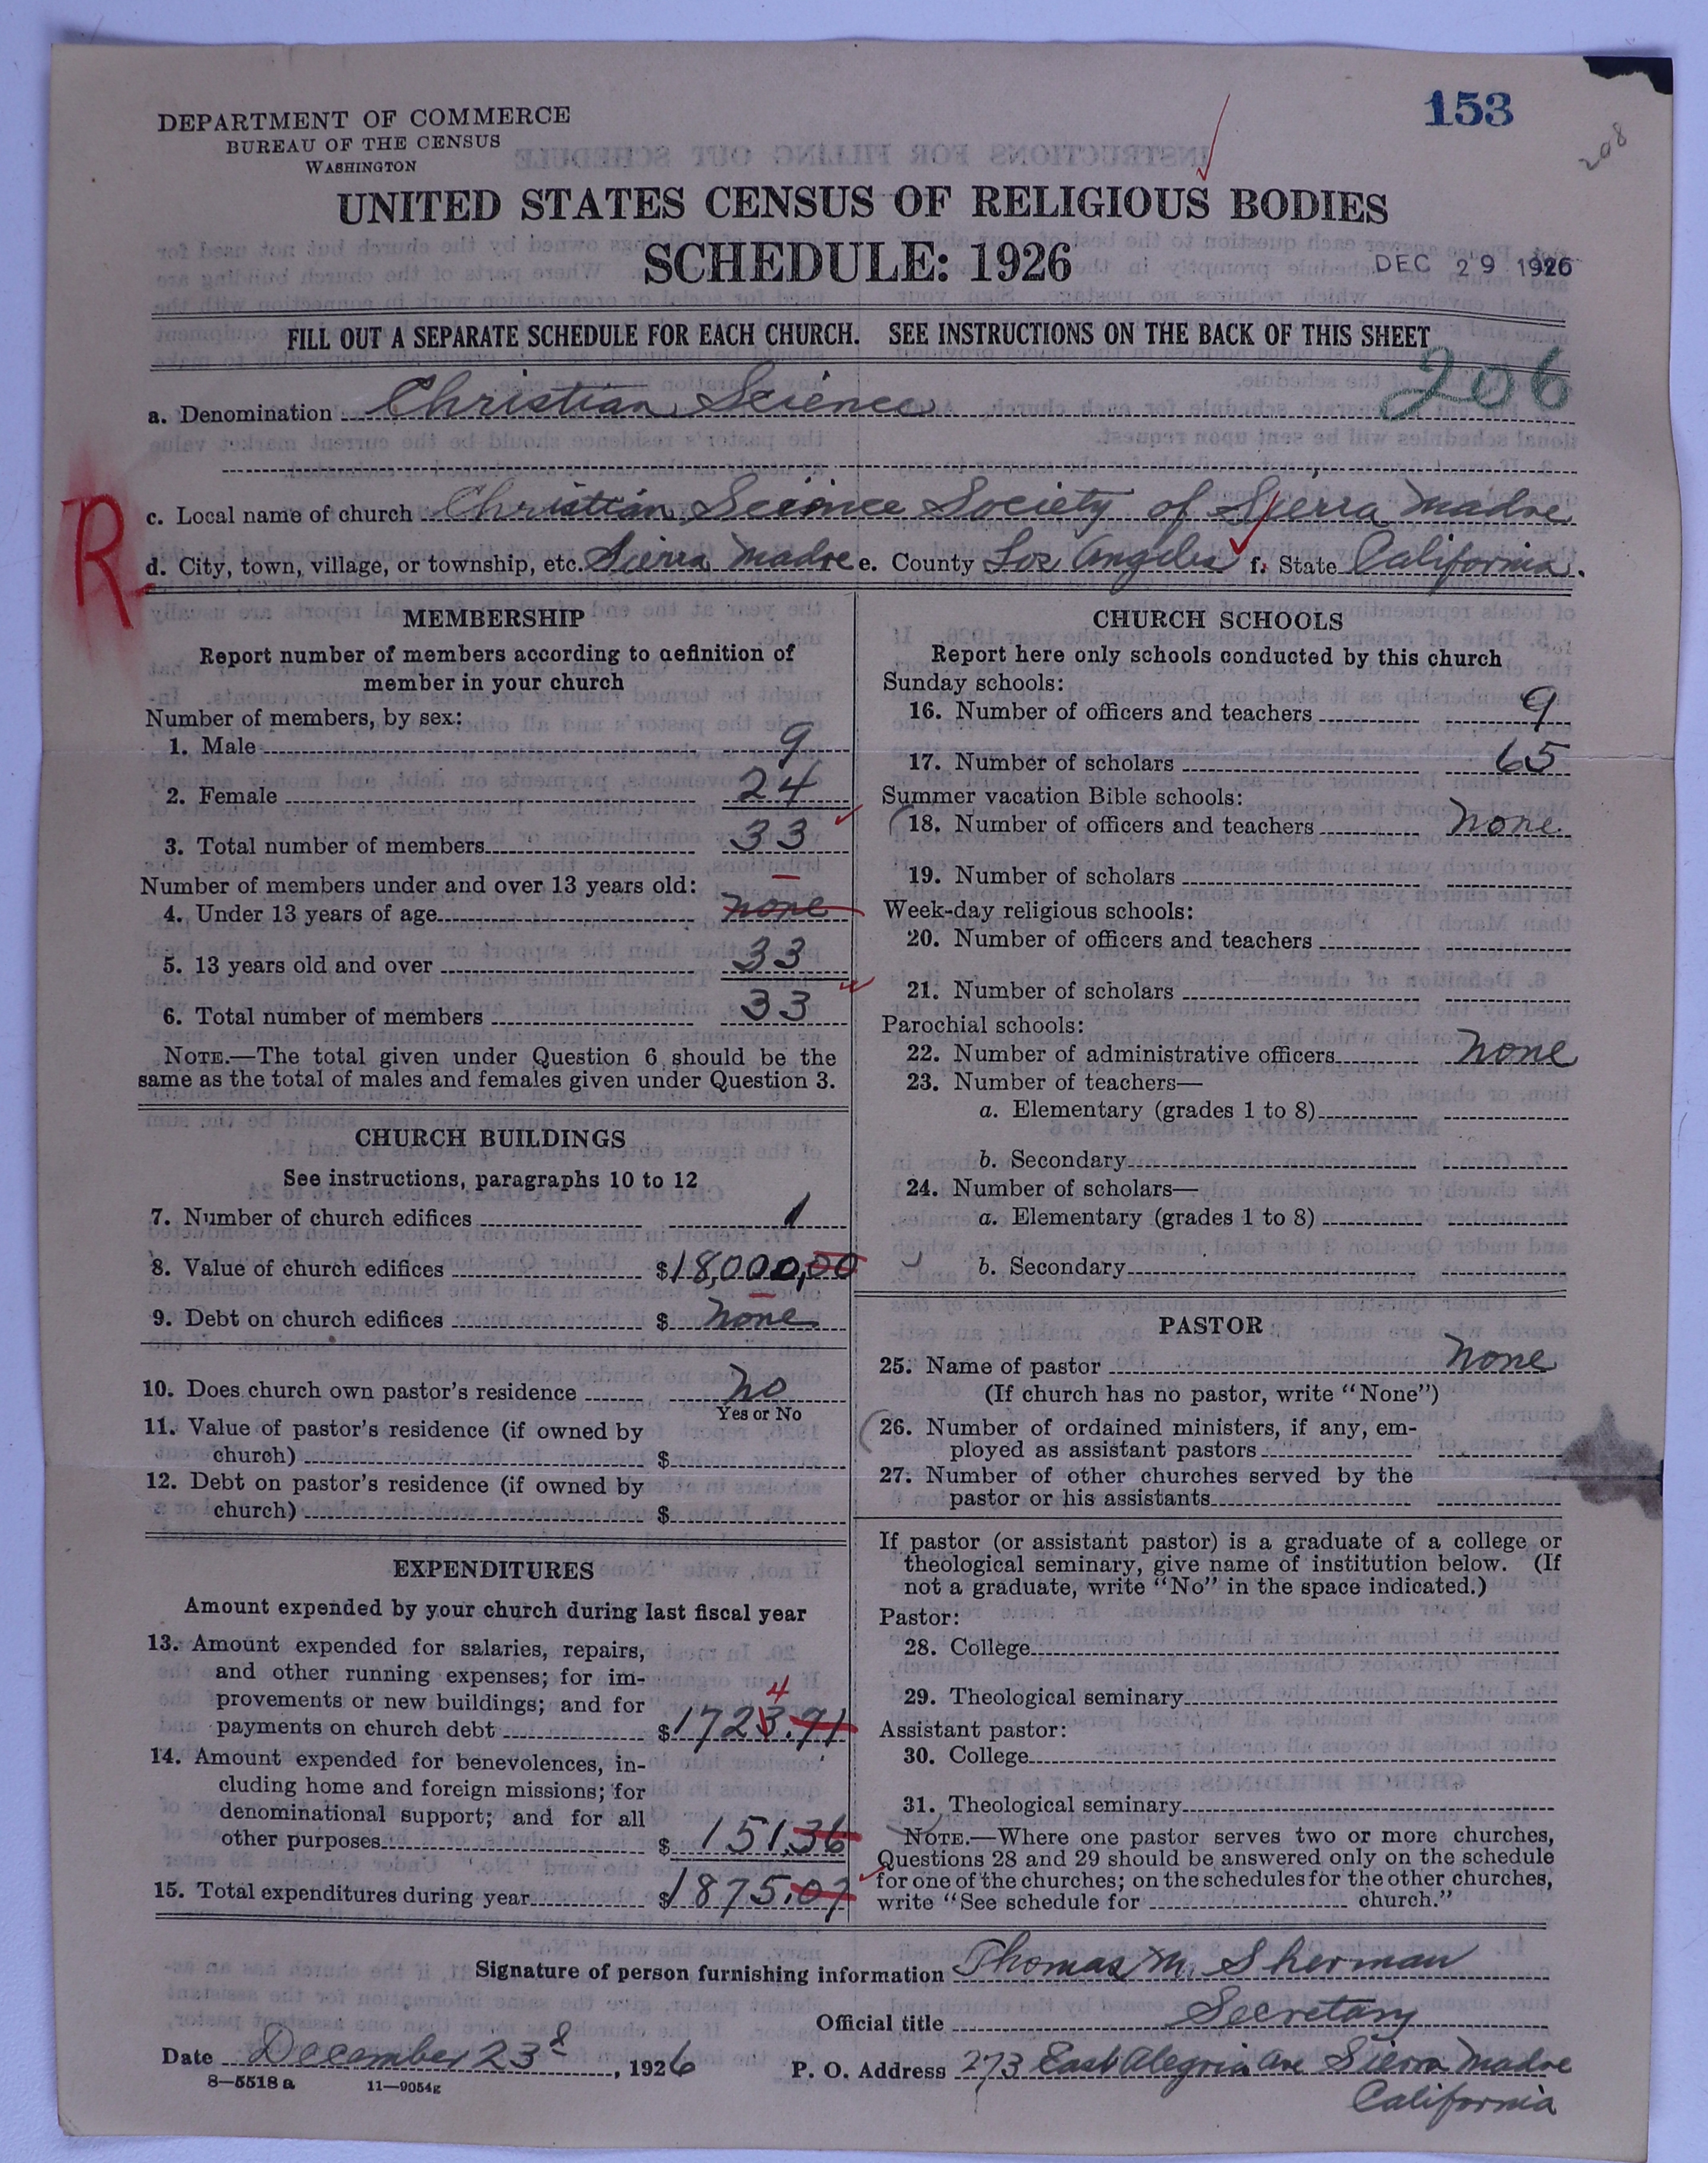 153
208
DEPARTMENT OF COMMERCE
BUREAU OF THE CENSUS
WASHINGTON
UNITED STATES CENSUS OF RELIGIOUS BODIES
SCHEDULE: 1926
DEC 29 1926
FILL OUT A SEPARATE SCHEDULE FOR EACH CHURCH. SEE INSTRUCTIONS ON THE BACK OF THIS SHEET
206
a. Denomination Christian Science
R
c. Local name of church Christian Science Society of Sierra Madre
d. City, town, village, or township, etc. Sierra Madre e. County Los Angeles f. State California.
MEMBERSHIP
Report number of members according to definition of
member in your church
Number of members, by sex:
1. Male 9
2. Female 24
3. Total number of members 33
Number of members under and over 13 years old:
4. Under 13 years of age none
5. 13 years old and over 33
6. Total number of members 33
NOTE.—The total given under Question 6 should be the
same as the total of males and females given under Question 3.
CHURCH BUILDINGS
See instructions, paragraphs 10 to 12
7. Number of church edifices 1
8. Value of church edifices $18,000,00
9. Debt on church edifices $ none
10. Does church own pastor's residence no
Yes or No
11. Value of pastor's residence (if owned by
church) $
12. Debt on pastor's residence (if owned by
church) $
EXPENDITURES
Amount expended by your church during last fiscal year
13. Amount expended for salaries, repairs,
and other running expenses; for im-
provements or new buildings; and for
4
payments on church debt $1723.71
14. Amount expended for benevolences, in-
cluding home and foreign missions; for
denominational support; and for all
other purposes $ 151.36
15. Total expenditures during year $1875.07
CHURCH SCHOOLS
Report here only schools conducted by this church
Sunday schools:
16. Number of officers and teachers 9
17. Number of scholars 65
Summer vacation Bible schools:
18. Number of officers and teachers none
19. Number of scholars
Week-day religious schools:
20. Number of officers and teachers
21. Number of scholars
Parochial schools:
22. Number of administrative officers none
23. Number of teachers—
a. Elementary (grades 1 to 8)
b. Secondary
24. Number of scholars—
a. Elementary (grades 1 to 8)
b. Secondary
PASTOR
25. Name of pastor none
(If church has no pastor, write "None")
26. Number of ordained ministers, if any, em-
ployed as assistant pastors
27. Number of other churches served by the
pastor or his assistants
If pastor (or assistant pastor) is a graduate of a college or
theological seminary, give name of institution below. (If
not a graduate, write "No" in the space indicated.)
Pastor:
28. College
29. Theological seminary
Assistant pastor:
30. College
31. Theological seminary
NOTE.—Where one pastor serves two or more churches,
Questions 28 and 29 should be answered only on the schedule
for one of the churches; on the schedules for the other churches,
write "See schedule for church."
Signature of person furnishing information Thomas M. Sherman
Official title Secretary
Date December 23, 1926 P. O. Address 273 East Alegria Ave Sierra Madre
California
8—5518 a 11—9054g